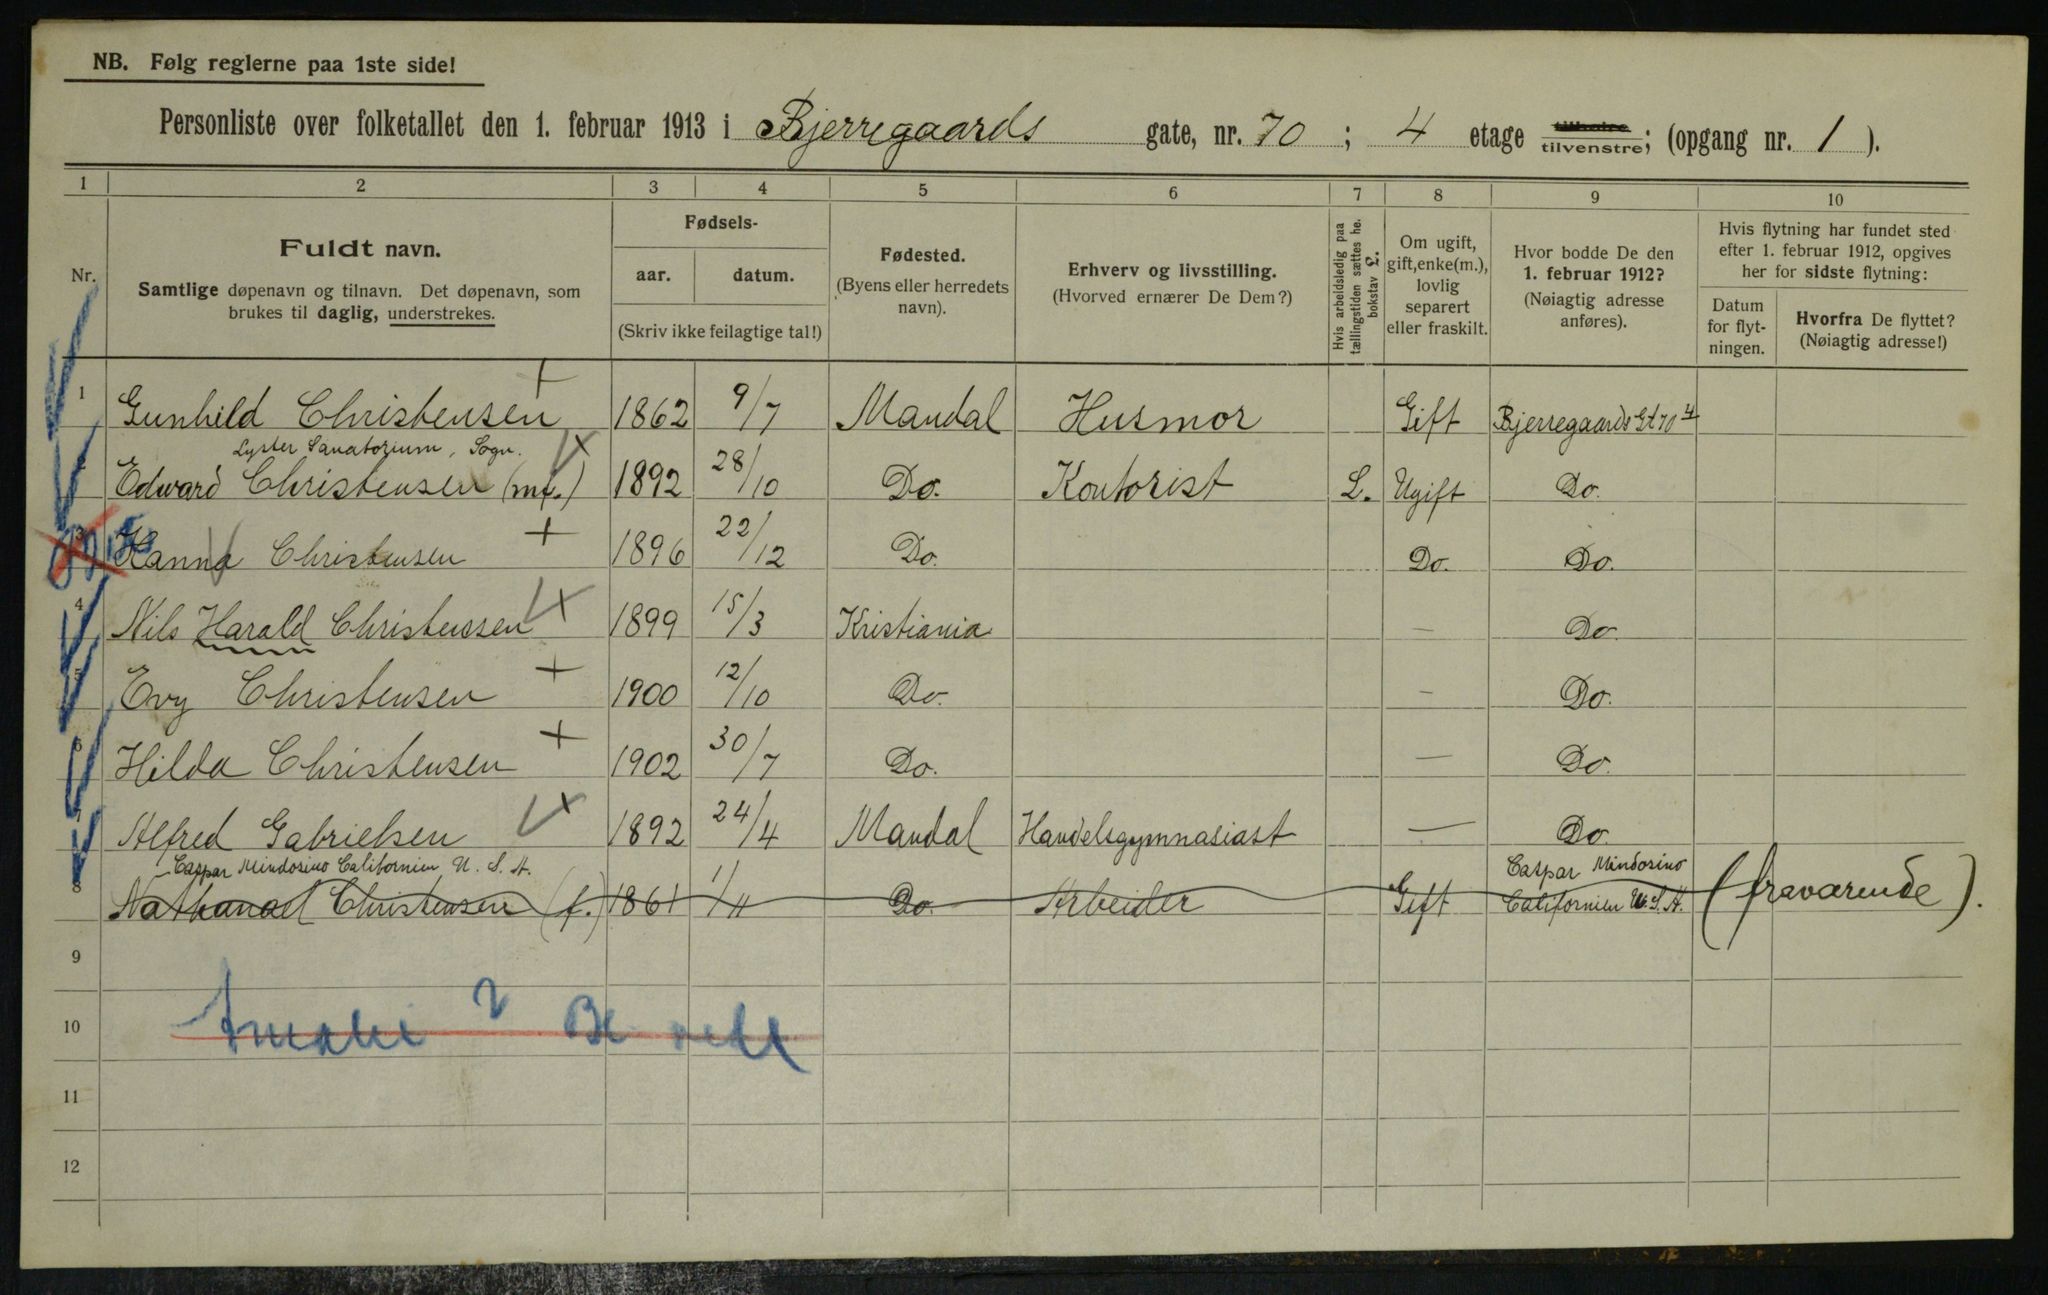 NB. Følg reglerne paa 1ste side!
Personliste over folketallet den 1. februar 1913 i Bjerregaards gate, nr. 70 ; 4 etage tilhøire tilvenstre; (opgang nr. 1 ).
1 2 3 4 5 6 7 8 9 10
Nr.
Fuldt navn.
Samtlige døpenavn og tilnavn. Det døpenavn, som
brukes til daglig, understrekes.
Fødsels-
aar. datum.
(Skriv ikke feilagtige tal!)
Fødested.
(Byens eller herredets
navn).
Erhverv og livsstilling.
(Hvorved ernærer De Dem?)
Hvis arbeidsledig paa
tællingstiden sættes he.
bokstav L.
Om ugift,
gift,enke(m.),
lovlig
separert
eller fraskilt.
Hvor bodde De den
1. februar 1912?
(Nøiagtig adresse
anføres).
Hvis flytning har fundet sted
efter 1. februar 1912, opgives
her for sidste flytning:
Datum
for flyt-
ningen.
Hvorfra De flyttet?
(Nøiagtig adresse!)
1 Gunhild Christensen + 1862 9/7 Mandal Husmor Gift Bjerregaards Gt 70 4
Lyster Sanatorium, Sogn.
2 Edward Christensen (mf.) 1892 28/10 Do. Kontorist L. Ugift Do.
3 Hanna Christensen + 1896 22/12 Do. Do. Do.
4 Nils Harald Christensen 1899 15/3 Kristiania — Do.
5 Evy Christensen + 1900 12/10 Do. — Do.
6 Hilda Christensen + 1902 30/7 Do. — Do.
7 Alfred Gabrielsen 1892 24/4 Mandal Handelsgymnasiast — Do.
Caspar Mindosino Californien U. S. A. Caspar Mindosino
8 Nathanael Christensen (f.) 1861 1/11 Do. Arbeider Gift Californien U.S.A. (fraværende).
9
10 Amalie
11
12